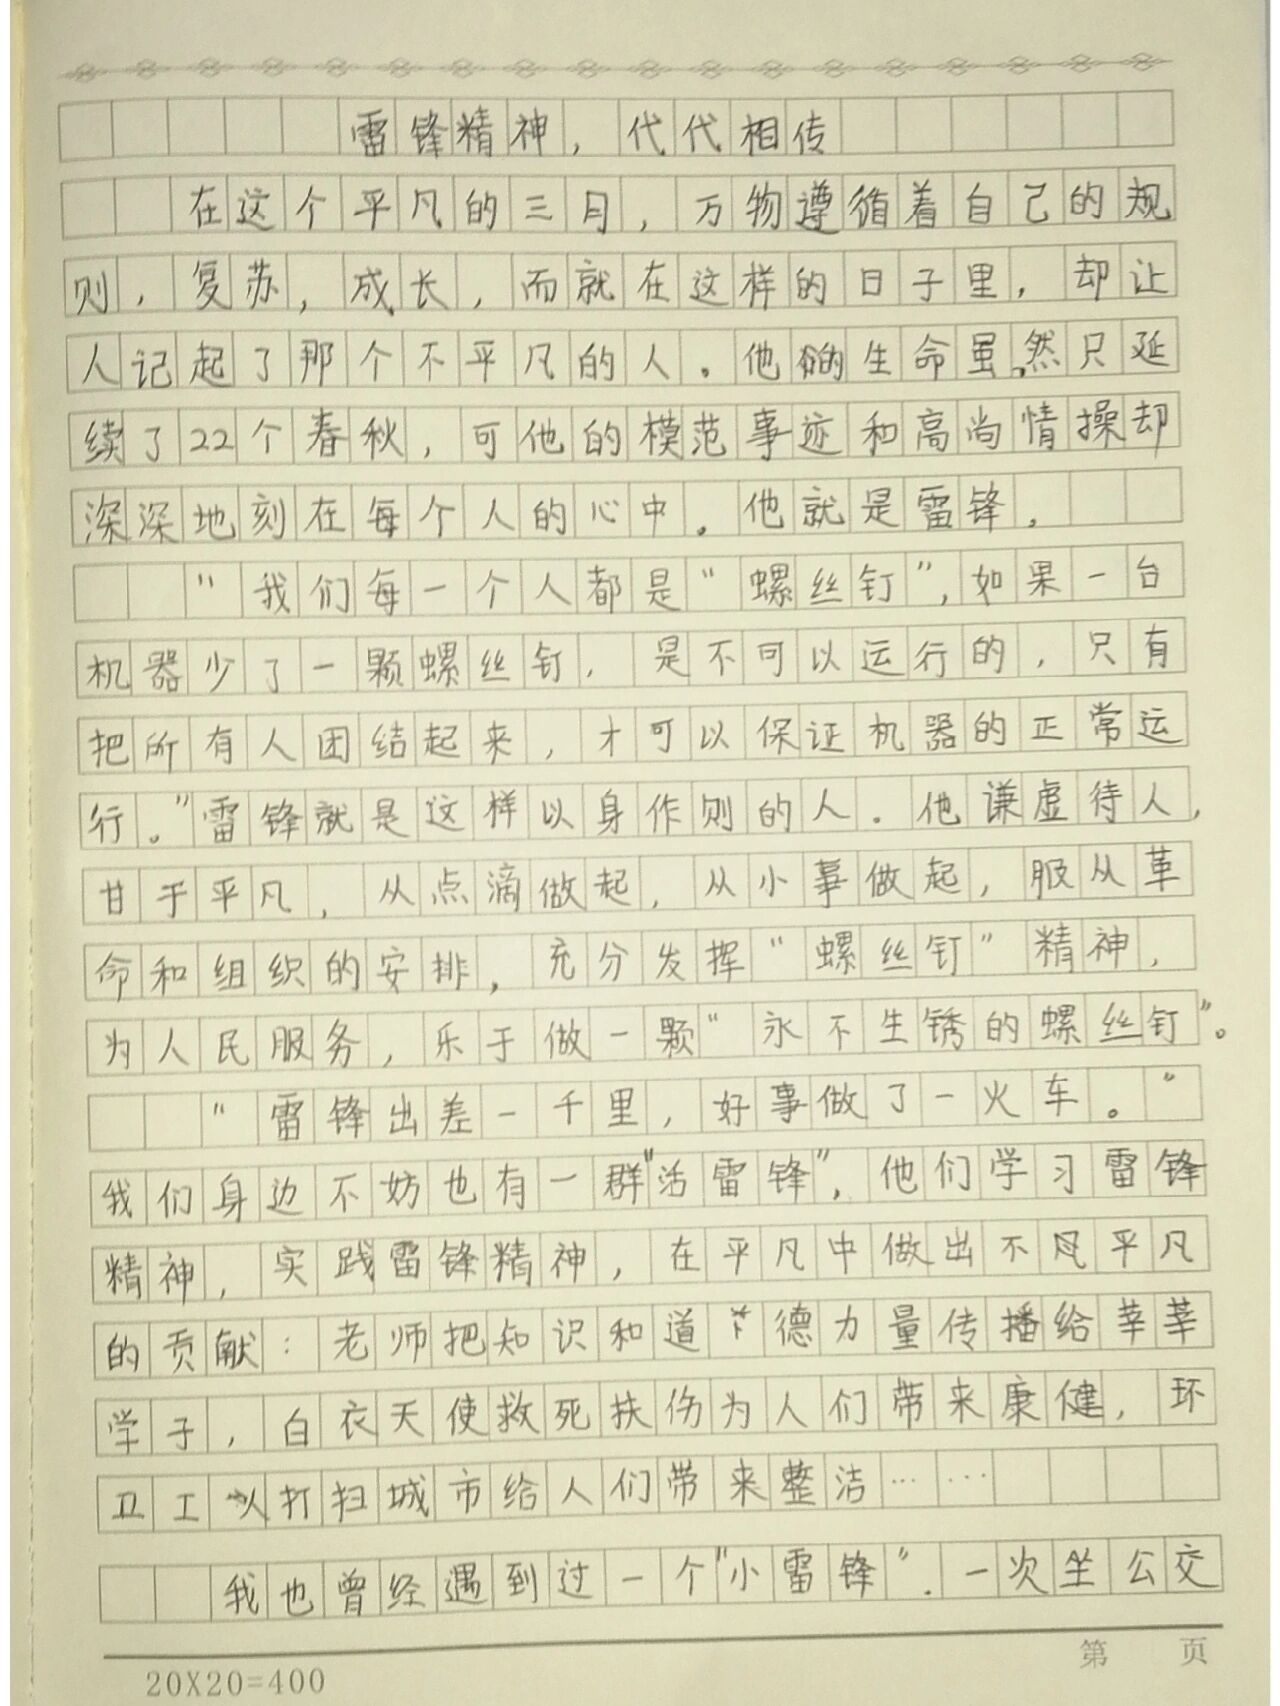 雷锋精神，代代相传
在这个平凡的三月，万物遵循着自己的规
则，复苏，成长，而就在这样的日子里，却让
人记起了那个不平凡的人。他的生命虽然只延
续了22个春秋，可他的模范事迹和高尚情操却
深深地刻在每个人的心中。他就是雷锋。
“我们每一个人都是“螺丝钉”，如果一台
机器少了一颗螺丝钉，是不可以运行的，只有
把所有人团结起来，才可以保证机器的正常运
行。”雷锋就是这样以身作则的人．他谦虚待人，
甘于平凡，从点滴做起，从小事做起，服从革
命和组织的安排，充分发挥“螺丝钉”精神，
为人民服务，乐于做一颗“永不生锈的螺丝钉”。
“雷锋出差一千里，好事做了一火车。”
我们身边不妨也有一群“活雷锋”，他们学习雷锋
精神，实践雷锋精神，在平凡中做出不平凡
的贡献：老师把知识和道德力量传播给莘莘
学子，白衣天使救死扶伤为人们带来康健，环
卫工人打扫城市给人们带来整洁……
我也曾经遇到过一个“小雷锋”．一次坐公交
第 页
20X20=400